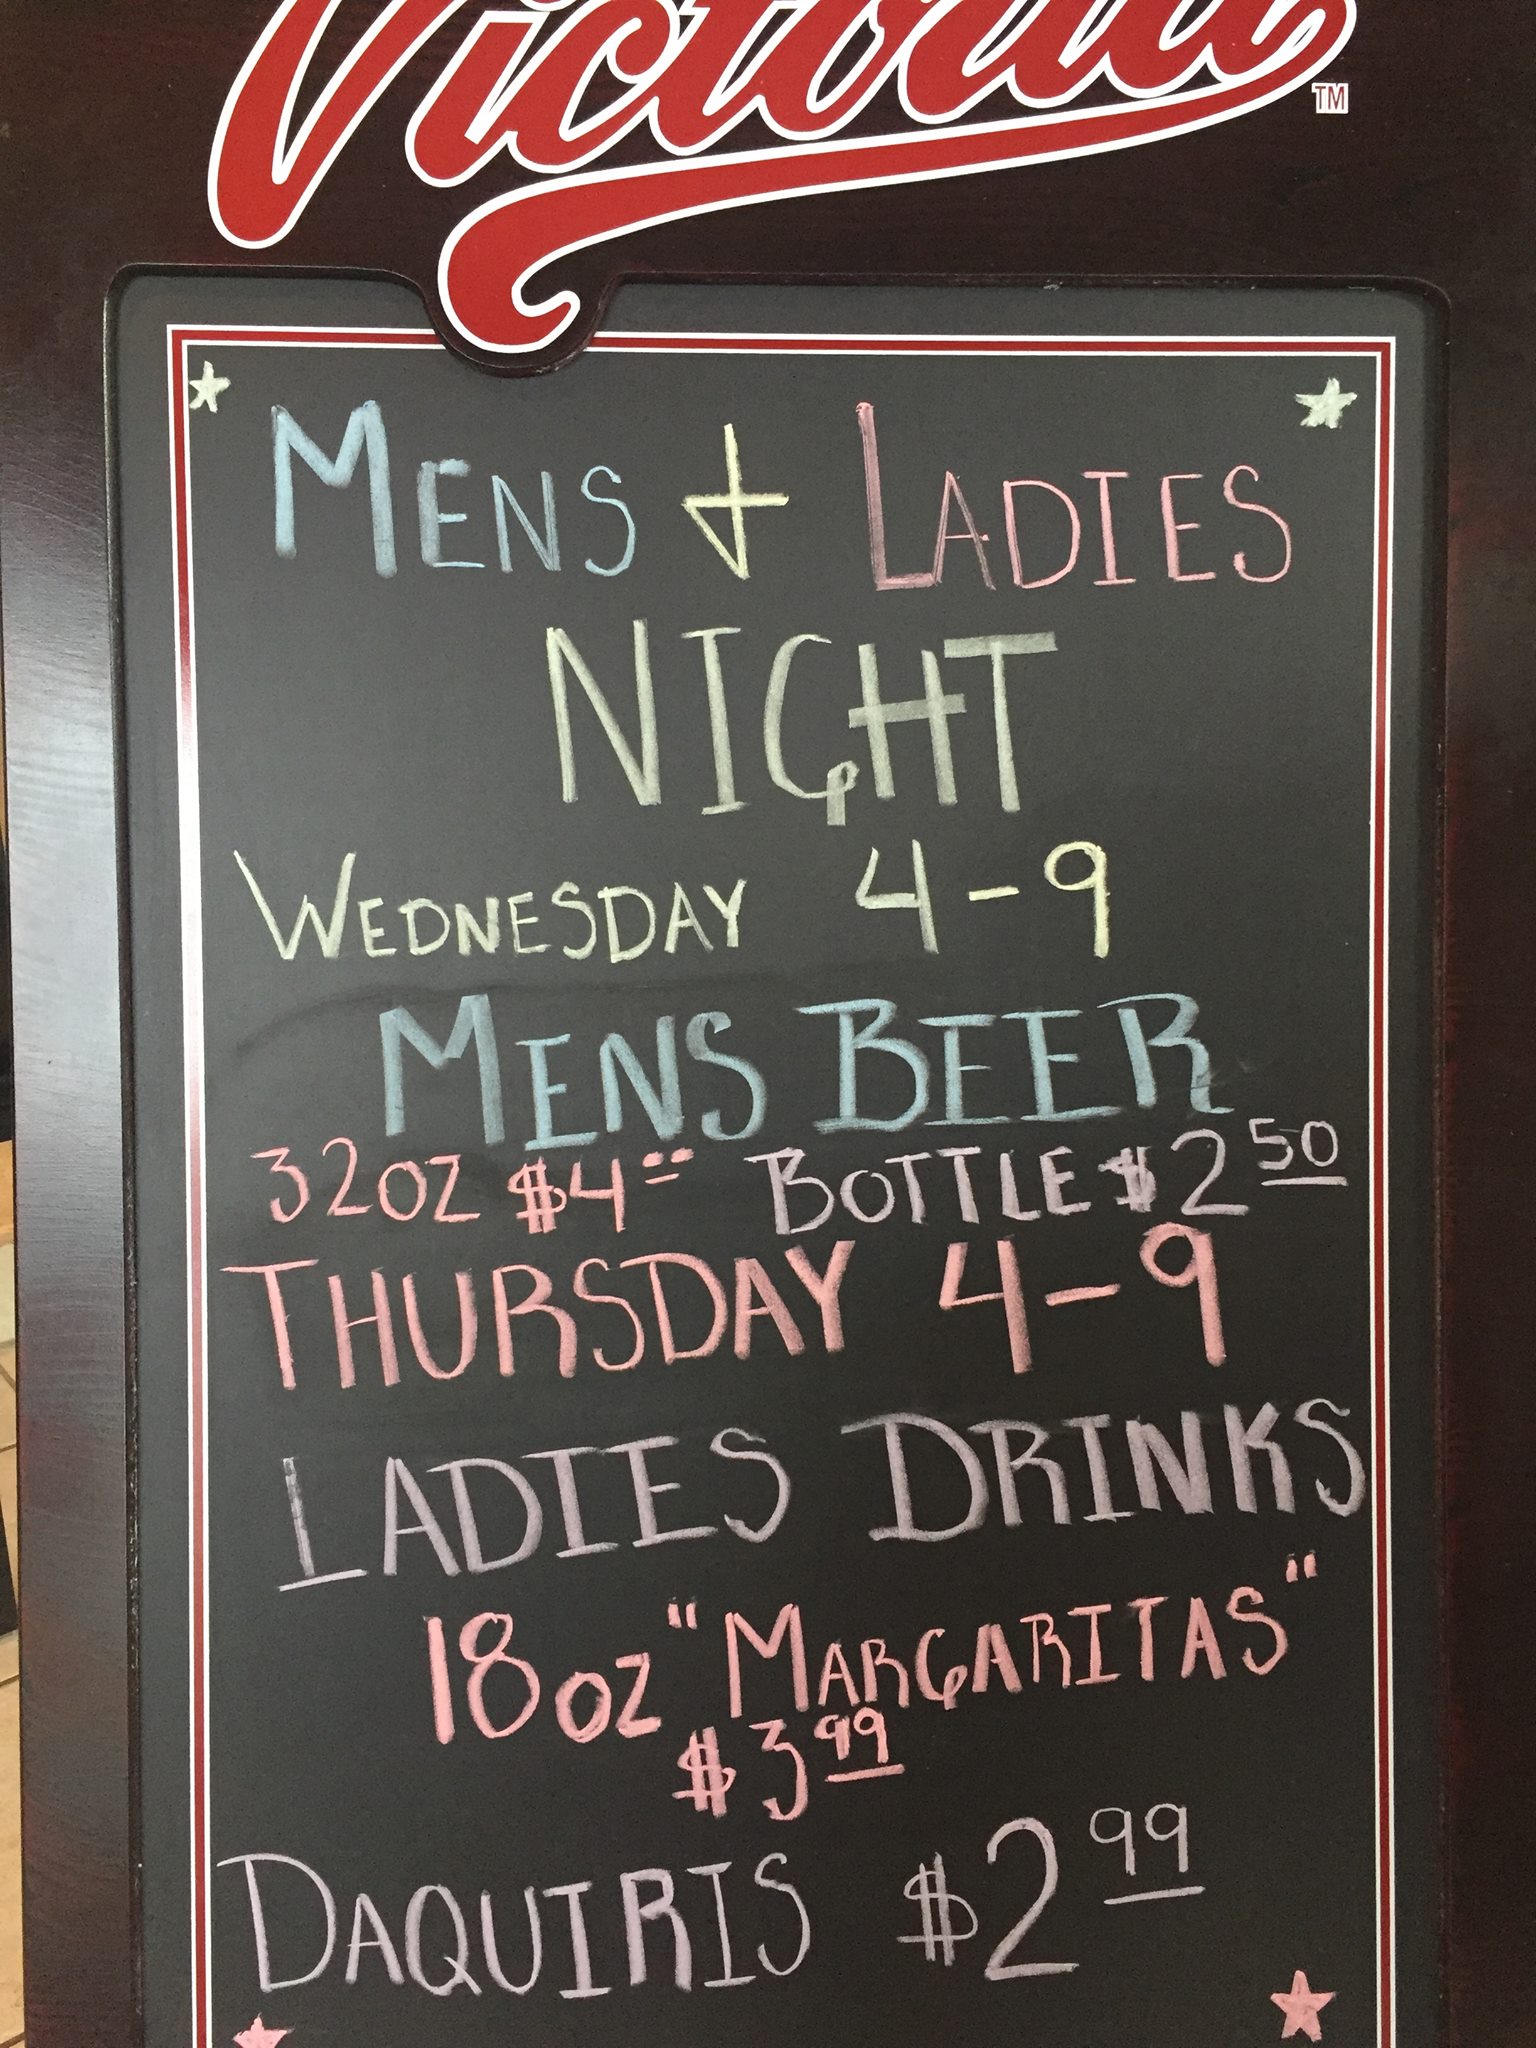 Victoria
TM
MENS & LADIES
NIGHT
WEDNESDAY 4-9
MENS BEER
32OZ $4.00 BOTTLE $2.50
THURSDAY 4-9
LADIES DRINKS
18OZ "MARGARITAS"
$3.99
DAQUIRIS $2.99